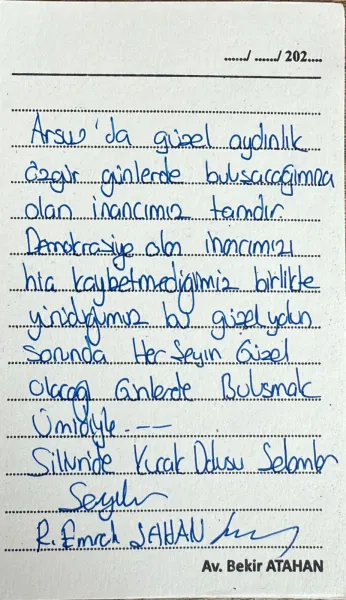 ....../ ....../ 202....
Arsuz'da güzel aydınlık
özgür günlerde buluşacağımıza
olan inancımız tamdır.
Demokrasiye olan inancımızı
hiç kaybetmediğimiz birlikte
yürüdüğümüz bu güzel yolun
sonunda Her Şeyin Güzel
Olacağı Günlerde Buluşmak
Ümidiyle. ---
Silivride Kucak Dolusu Selamlar
R. Emrah ŞAHAN
Av. Bekir ATAHAN